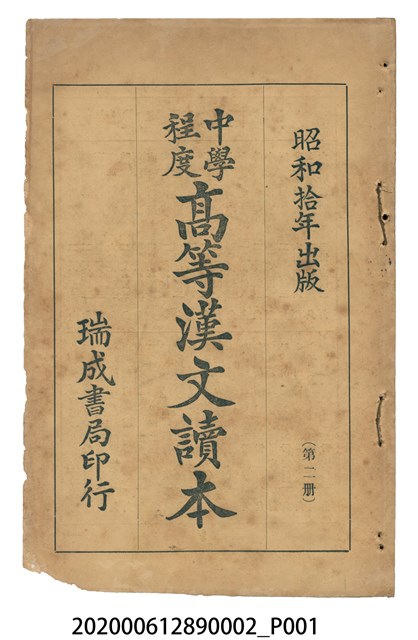 昭和拾年出版
（第二册）
中學
程度
高等漢文讀本
瑞成書局印行
202000612890002_P001